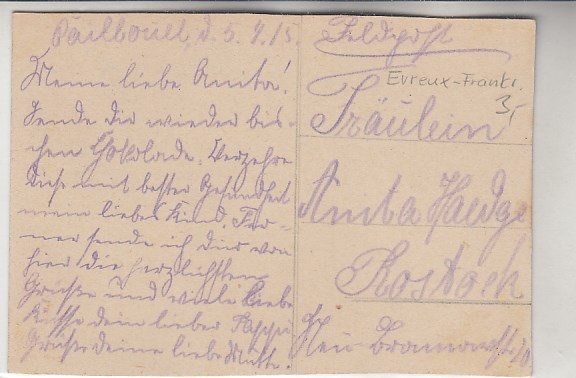 Pailbouet, d. 5.9.15.
Meine liebe Anita!
Sende dir wieder bis-
chen Schokolade. Verzehre
diese mit bester Gesundheit
mein liebes Kind. Fer-
ner sende ich dir von
hier die herzlichsten
Grüße und viele liebe
Küsse dein lieber Pappi
Grüße deine liebe Mutti.
Feldpost
Evreux-Frankr.
3,-
Fräulein
Anita
Rostock
Neu-Bramowstr.